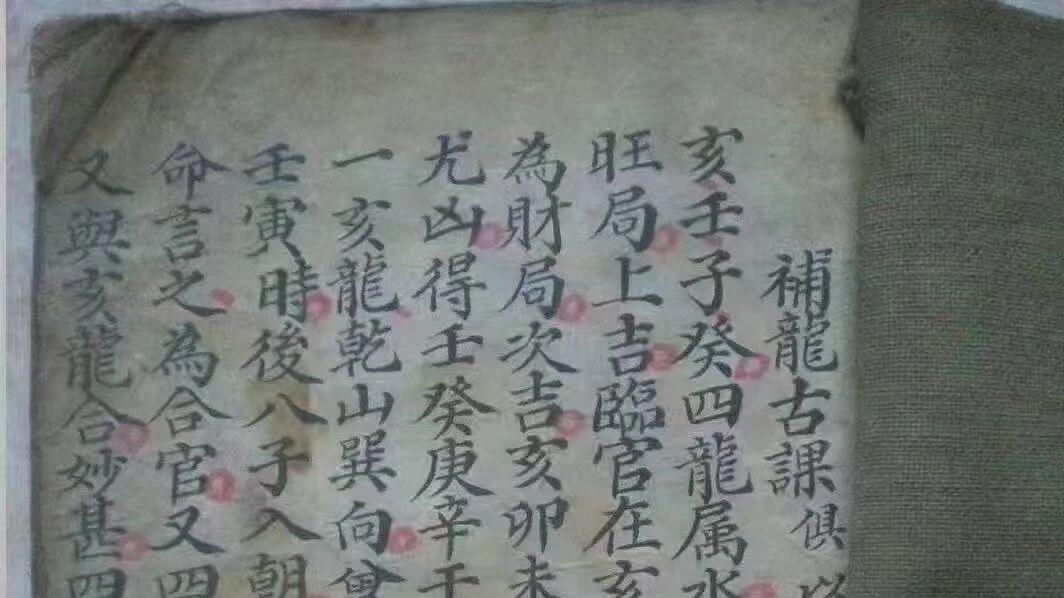 補龍古課俱以
亥壬子癸四龍属水
旺局上吉臨官在亥
為財局次吉亥卯未
尤凶得壬癸庚辛干
一亥龍乾山巽向曾
壬寅時後八子入朝
命言之為合官又四
又與亥龍合妙甚四